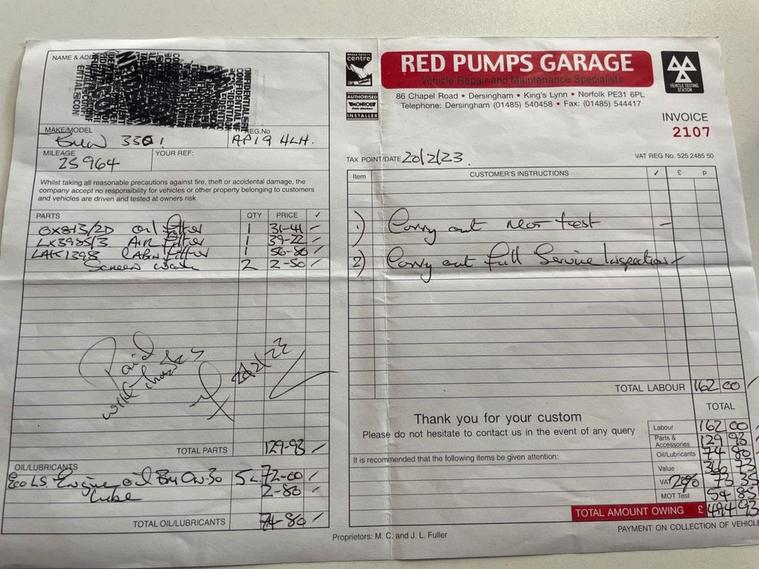 NAME & ADD
MAKE/MODEL
REG.No
AP19 4LH.
MILEAGE
25964
YOUR REF:
Whilst taking all reasonable precautions against fire, theft or accidental damage, the
company accept no responsibility for vehicles or other property belonging to customers
and vehicles are driven and tested at owners risk
PARTS QTY PRICE ✓
OX813/2D Oil Filter 1 31-41
LX3985/3 AIR Filter 1 39-22
CABIN Filter 1
Screen wash 2 2-50
Paid
with
TOTAL PARTS 129-93
OIL/LUBRICANTS
Engine oil 5L 72-00
Lube 2-80
TOTAL OIL/LUBRICANTS 74-80
centre
AUTHORISED
MONROE
INSTALLER
RED PUMPS GARAGE
Vehicle Repair and Maintenance Specialists
86 Chapel Road • Dersingham • King's Lynn • Norfolk PE31 6PL
Telephone: Dersingham (01485) 540458 • Fax: (01485) 544417
VEHICLE TESTING
STATION
INVOICE
2107
TAX POINT/DATE 20/2/23.
VAT REG No. 525 2485 50
Item CUSTOMER'S INSTRUCTIONS ✓ £ p
1) Carry out MOT test
2) Carry out full Service/Inspection
TOTAL LABOUR 162 00
TOTAL
Thank you for your custom
Please do not hesitate to contact us in the event of any query
It is recommended that the following items be given attention:
Labour 162 00
Parts & Accessories 129 93
Oil/Lubricants 74 80
Value 366 73
VAT 20% 73 35
MOT Test 54 85
TOTAL AMOUNT OWING £ 494 93
PAYMENT ON COLLECTION OF VEHICL
Proprietors: M. C. and J. L. Fuller